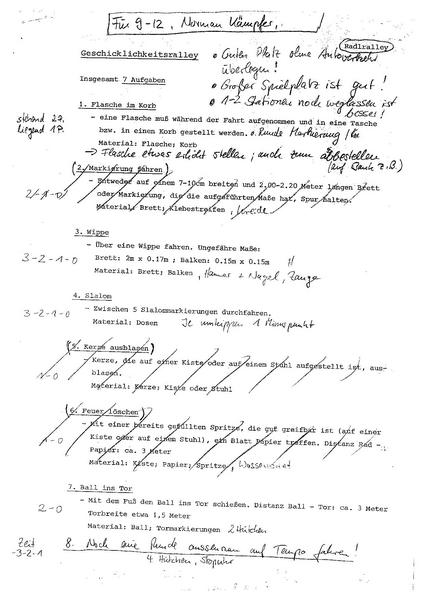 Für 9-12, Norman Kämpfer,
Radlralley
Geschicklichkeitsralley
• Guten Platz ohne Autoverkehr
überlegen!
Insgesamt 7 Aufgaben
• Großer Spielplatz ist gut!
• 1-2 Stationen noch weglassen ist
besser!
1. Flasche im Korb
stehend 2P.
liegend 1P.
- eine Flasche muß während der Fahrt aufgenommen und in eine Tasche
bzw. in einen Korb gestellt werden. • Runde Markierung
Material: Flasche; Korb
→ Flasche etwas erhöht stellen; auch zum abbestellen
(auf Bank z.B.)
(2. Markierung fahren)
- Entweder auf einem 7-10cm breiten und 2,00-2.20 Meter langen Brett
oder Markierung, die die aufgeführten Maße hat, Spur halten.
2-1-0
Material: Brett; Klebestreifen, Kreide
3. Wippe
- Über eine Wippe fahren. Ungefähre Maße:
3-2-1-0
Brett: 2m x 0.17m ; Balken: 0.15m x 0.15m
Material: Brett; Balken, Hammer + Nagel, Zange
4. Slalom
3-2-1-0
- Zwischen 5 Slalommarkierungen durchfahren.
Material: Dosen Je umkippen 1 Minuspunkt
(5. Kerze ausblasen)
- Kerze, die auf einer Kiste oder auf einem Stuhl aufgestellt ist, aus-
blasen.
1-0
Material: Kerze; Kiste oder Stuhl
(6. Feuer löschen)
- Mit einer bereits gefüllten Spritze, die gut greifbar ist (auf einer
1-0
Kiste oder auf einem Stuhl), ein Blatt Papier treffen. Distanz Rad -
Papier: ca. 3 Meter
Material: Kiste; Papier; Spritze,
7. Ball ins Tor
2-0
- Mit dem Fuß den Ball ins Tor schießen. Distanz Ball - Tor: ca. 3 Meter
Torbreite etwa 1,5 Meter
Material: Ball; Tormarkierungen 2 Hütchen
Zeit
-3-2-1
8. Noch eine Runde aussenrum auf Tempo fahren!
4 Hütchen, Stopuhr